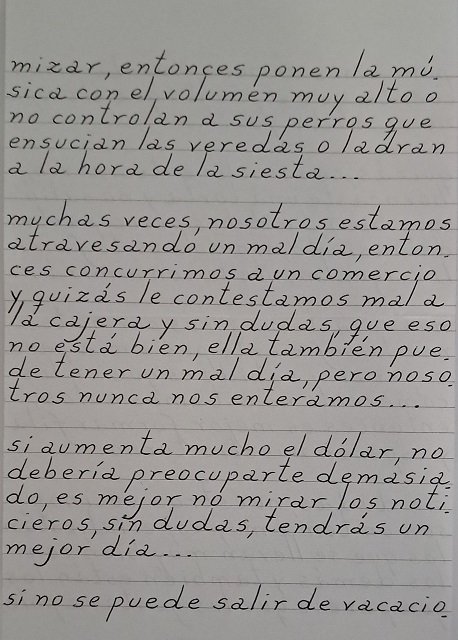 mizar, entonces ponen la mú-
sica con el volumen muy alto o
no controlan a sus perros que
ensucian las veredas o ladran
a la hora de la siesta...
muchas veces, nosotros estamos
atravesando un mal día, enton-
ces concurrimos a un comercio
y quizás le contestamos mal a
la cajera y sin dudas, que eso
no está bien, ella también pue-
de tener un mal día, pero noso-
tros nunca nos enteramos...
si aumenta mucho el dólar, no
debería preocuparte demasia-
do, es mejor no mirar los noti-
cieros, sin dudas, tendrás un
mejor día...
si no se puede salir de vacacio-